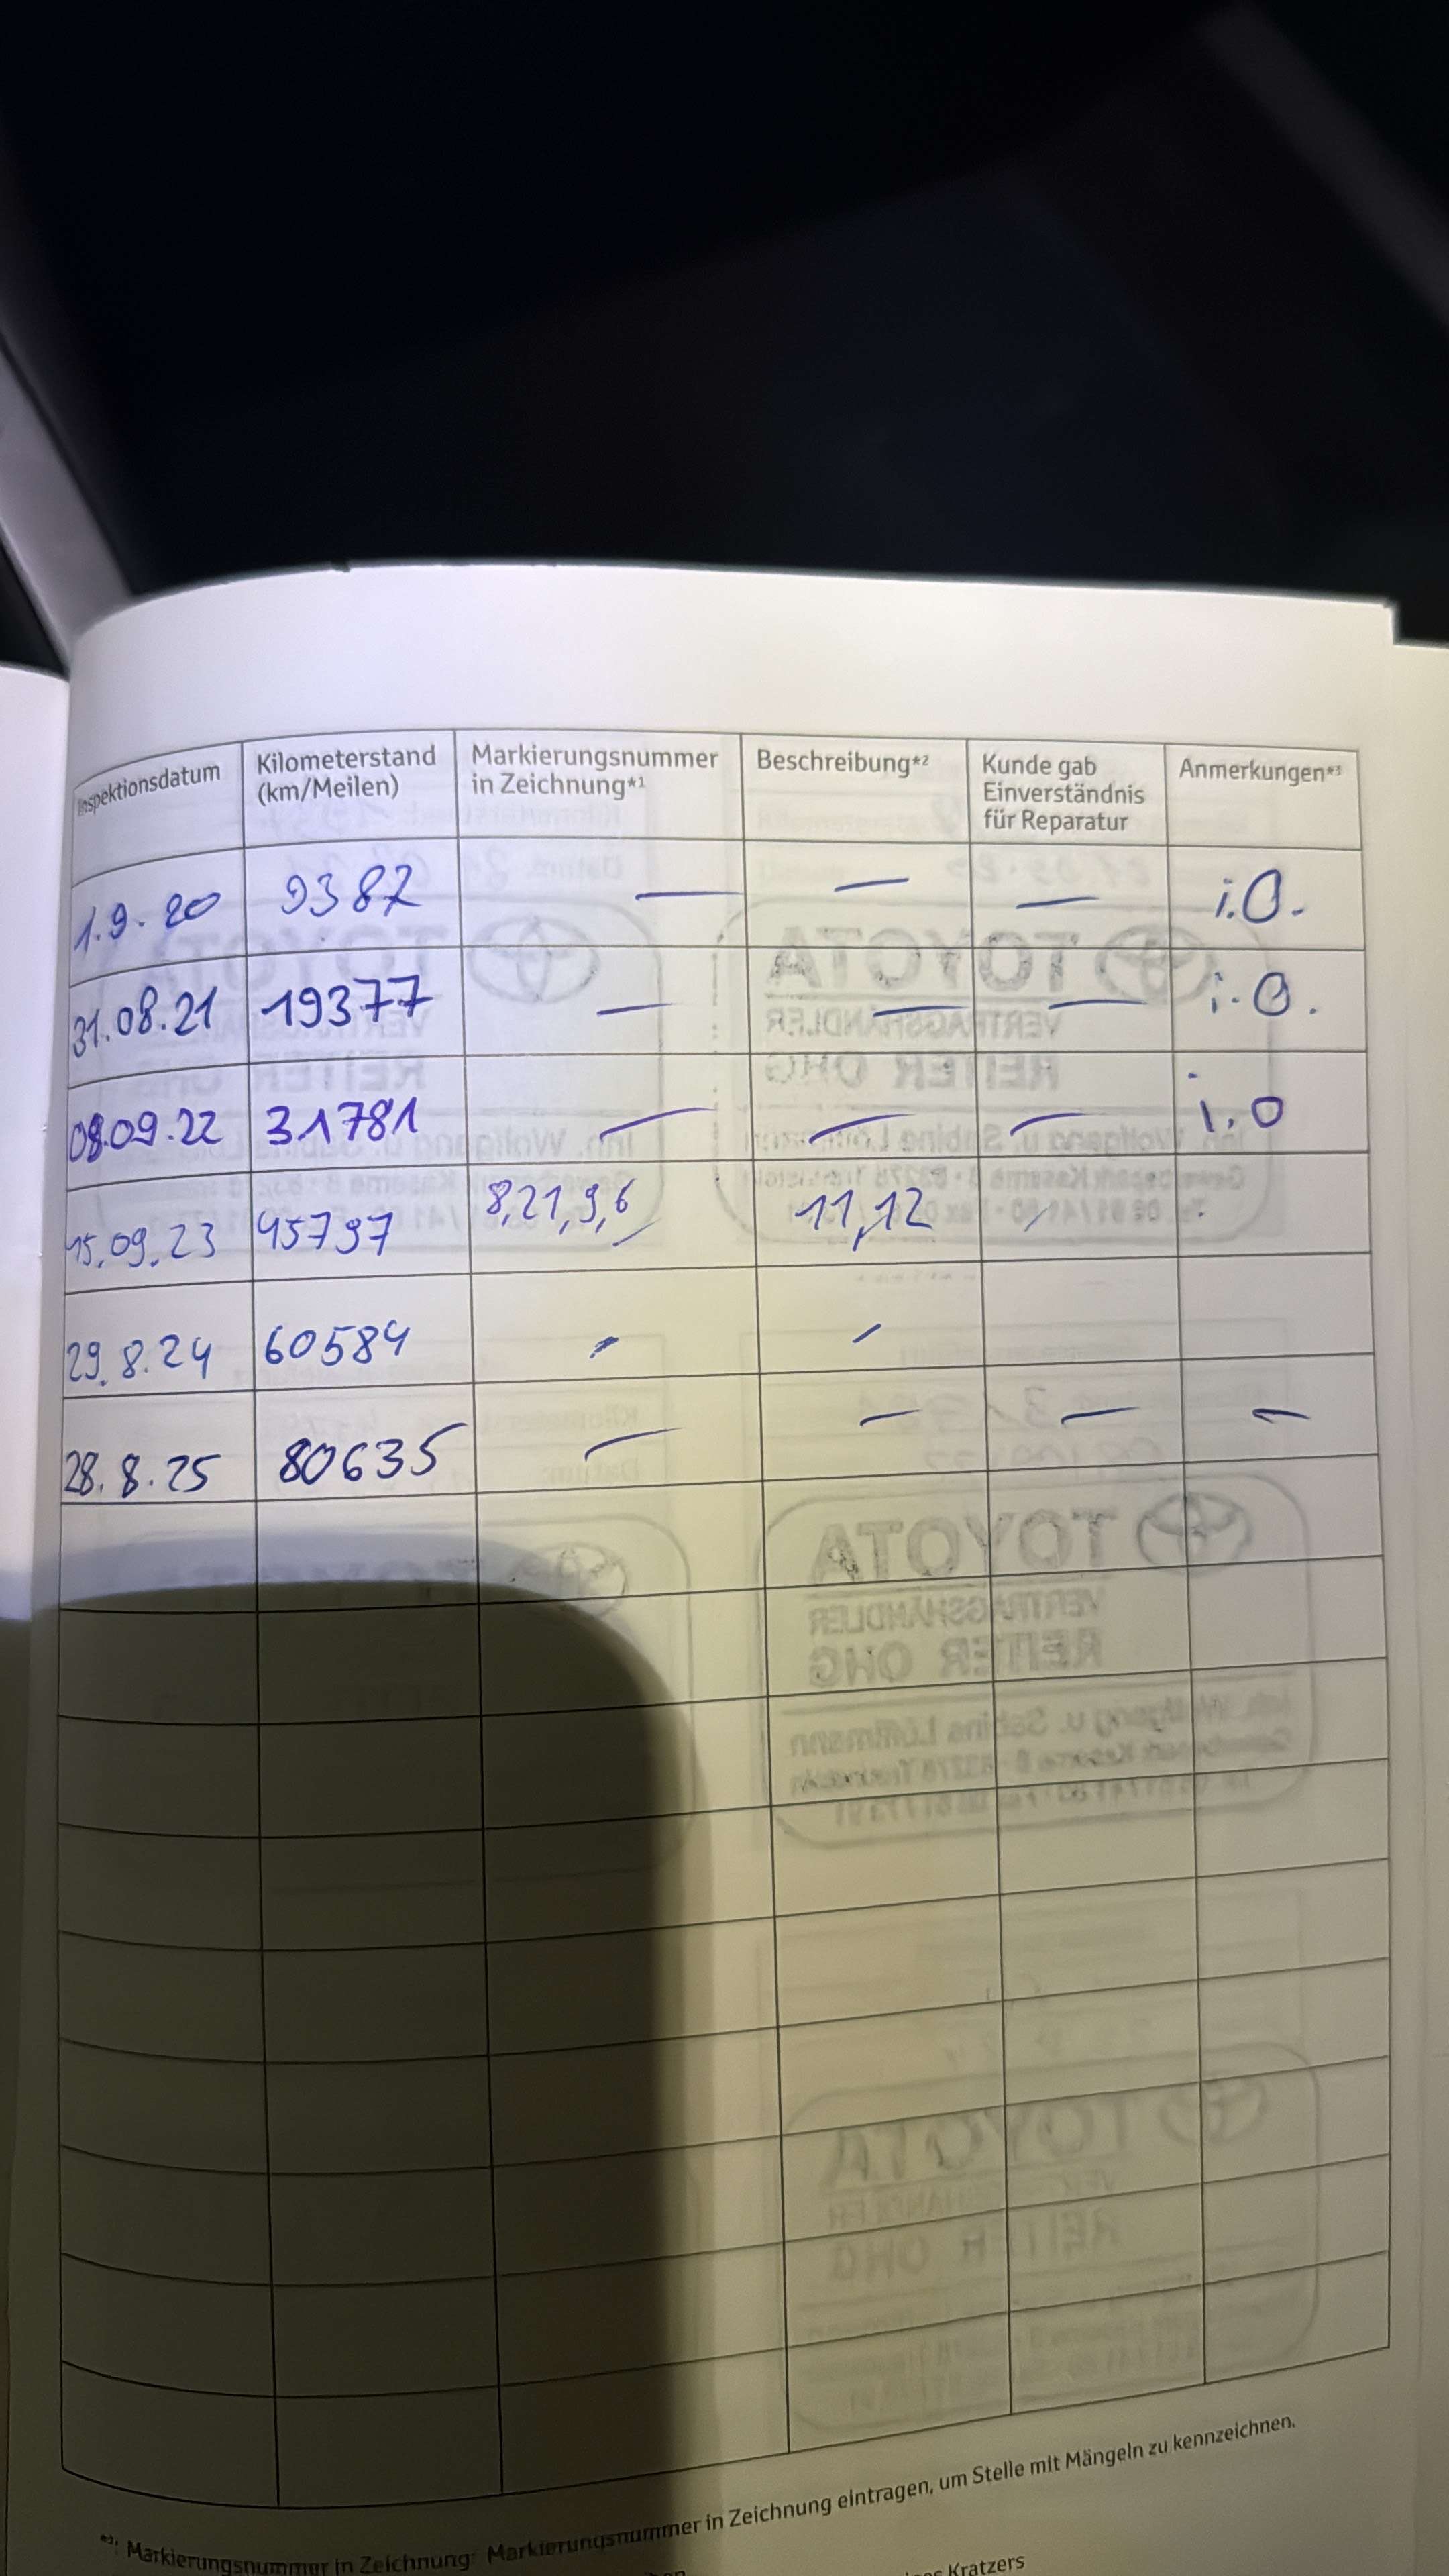 Inspektionsdatum Kilometerstand (km/Meilen) Markierungsnummer in Zeichnung*1 Beschreibung*2 Kunde gab Einverständnis für Reparatur Anmerkungen*3
1.9.20 9387 — — — i.O.
31.08.21 19377 — — — i.O.
08.09.22 31781 — — — i.O
15.09.23 45797 8,21,9,6 11,12 /
29.8.24 60584 - -
28.8.25 80635 — — — —
TOYOTA TOYOTA
VERTRAGSHÄNDLER
REITER OHG REITER OHG
Inh. Wolfgang u. Sabine
TOYOTA
VERTRAGSHÄNDLER
REITER OHG
Inh. Wolfgang u. Sabine Löffmann
TOYOTA
REITER OHG
Markierungsnummer in Zeichnung: Markierungsnummer in Zeichnung eintragen, um Stelle mit Mängeln zu kennzeichnen.
Kratzers